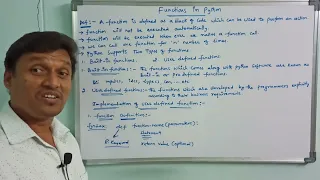 Functions in Python
Def:- A function is defined as a block of code which can be used to perform an action
→ function will not be executed automatically.
→ function will be executed when ever we make a function call
→ we can call one function for 'n' number of times.
→ Python supports Two types of functions
1. Built in functions. 2. User defined functions
1. Built in functions:- The functions which comes along with Python software are known as
Built in or pre defined functions.
Ex: input(), len(), type(), etc..
2. User defined functions:- The functions which are developed by the programmers explicitly
according to their business requirements.
Implementation of User defined functions:-
1. function Definition:-
Syntax: def function-name(parameters):
Statements
return value (optional)